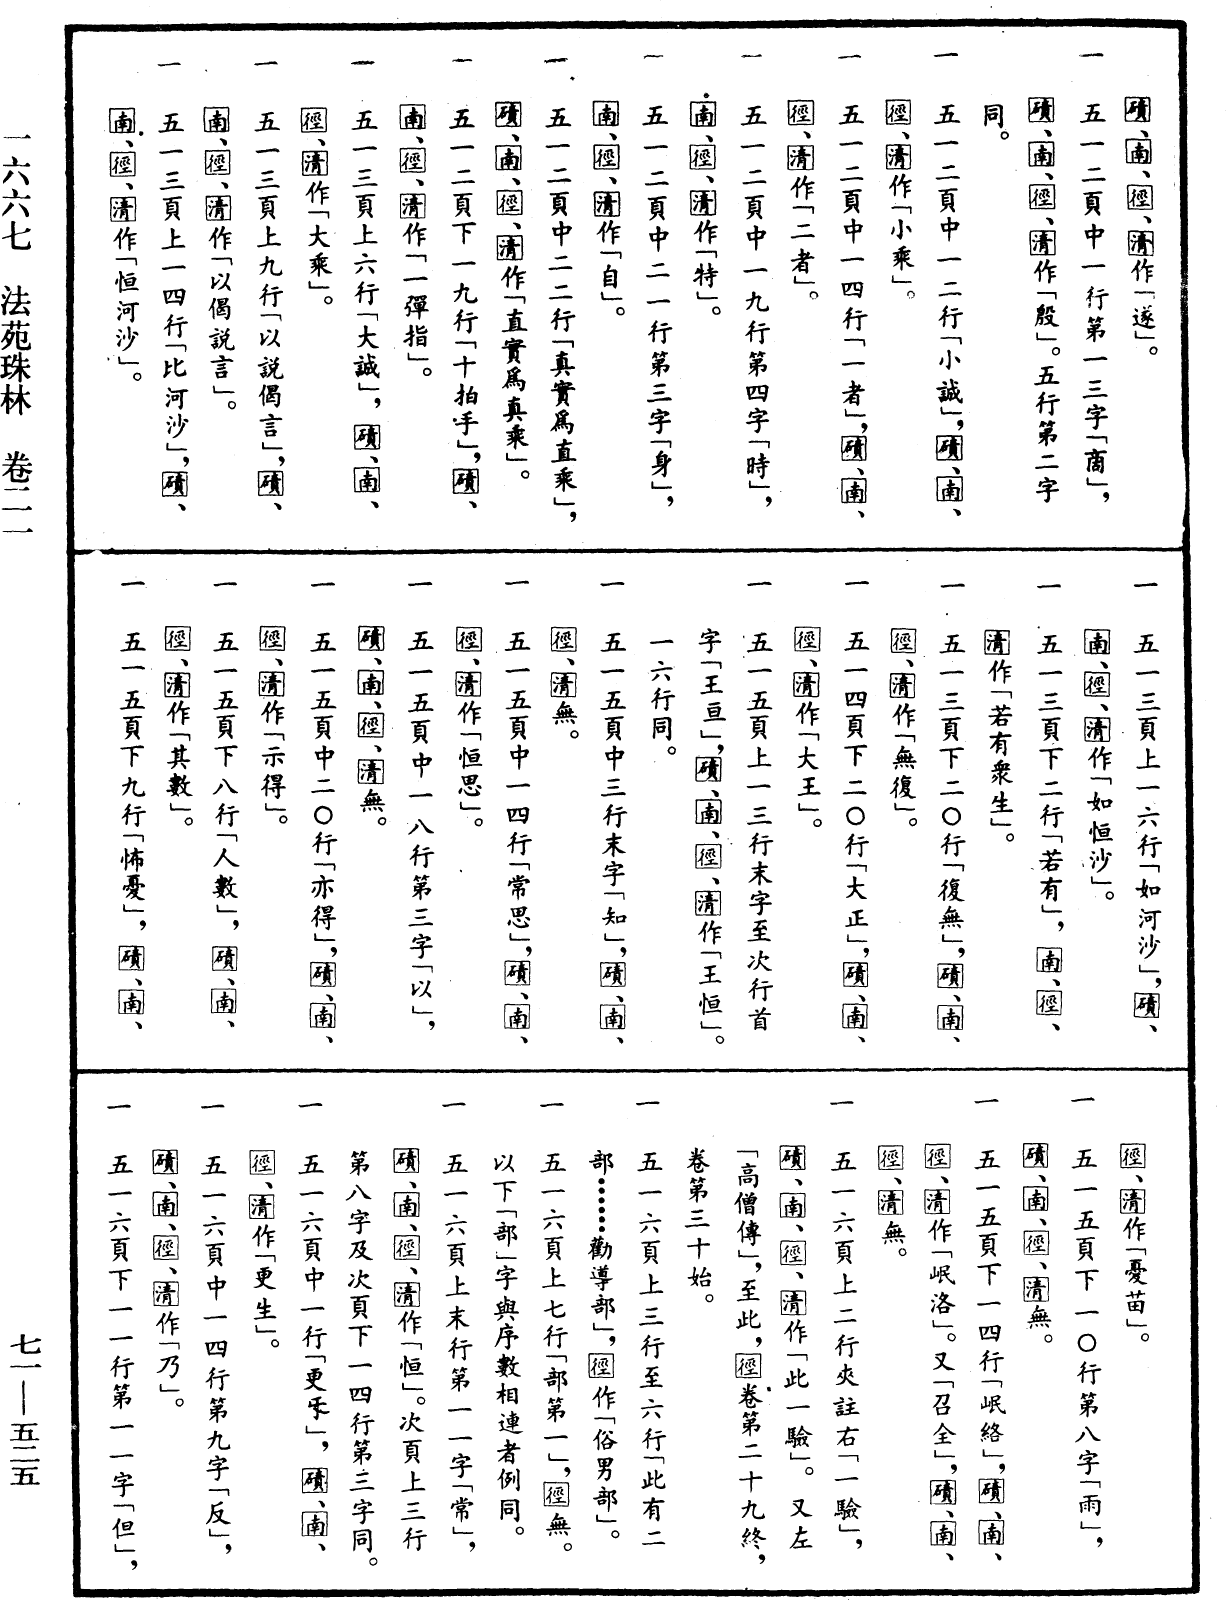 磧、南、徑、清作「遂」。
一　五一二頁中一行第一三字「商」，
磧、南、徑、清作「殷」。五行第二字
同。
一　五一二頁中一二行「小誠」，磧、南、
徑、清作「小乘」。
一　五一二頁中一四行「一者」，磧、南、
徑、清作「二者」。
一　五一二頁中一九行第四字「時」，
南、徑、清作「特」。
一　五一二頁中二一行第三字「身」，
南、徑、清作「自」。
一　五一二頁中二二行「真實爲直乘」，
磧、南、徑、清作「直實爲真乘」。
一　五一二頁下一九行「十拍手」，磧、
南、徑、清作「一彈指」。
一　五一三頁上六行「大誠」，磧、南、
徑、清作「大乘」。
一　五一三頁上九行「以説偈言」，磧、
南、徑、清作「以偈説言」。
一　五一三頁上一四行「比河沙」，磧、
南、徑、清作「恒河沙」。
一　五一三頁上一六行「如河沙」，磧、
南、徑、清作「如恒沙」。
一　五一三頁下二行「若有」，南、徑、
清作「若有衆生」。
一　五一三頁下二〇行「復無」，磧、南、
徑、清作「無復」。
一　五一四頁下二〇行「大正」，磧、南、
徑、清作「大王」。
一　五一五頁上一三行末字至次行首
字「王亘」，磧、南、徑、清作「王恒」。
一六行同。
一　五一五頁中三行末字「知」，磧、南、
徑、清無。
一　五一五頁中一四行「常思」，磧、南、
徑、清作「恒思」。
一　五一五頁中一八行第三字「以」，
磧、南、徑、清無。
一　五一五頁中二〇行「亦得」，磧、南、
徑、清作「示得」。
一　五一五頁下八行「人數」，磧、南、
徑、清作「其數」。
一　五一五頁下九行「怖憂」，磧、南、
徑、清作「憂苗」。
一　五一五頁下一〇行第八字「雨」，
磧、南、徑、清無。
一　五一五頁下一四行「岷絡」，磧、南、
徑、清作「岷洛」。又「召全」，磧、南、
徑、清無。
一　五一六頁上二行夾註右「一驗」，
磧、南、徑、清作「此一驗」。又左
「高僧傳」，至此，徑卷第二十九終，
卷第三十始。
一　五一六頁上三行至六行「此有二
部……勸導部」，徑作「俗男部」。
一　五一六頁上七行「部第一」，徑無。
以下「部」字與序數相連者例同。
一　五一六頁上末行第一一字「常」，
磧、南、徑、清作「恒」。次頁上三行
第八字及次頁下一四行第三字同。
一　五一六頁中一行「更」，磧、南、
徑、清作「更生」。
一　五一六頁中一四行第九字「反」，
磧、南、徑、清作「乃」。
一　五一六頁下一一行第一一字「但」，
一六六七　法苑珠林　卷二一
七一—五二五